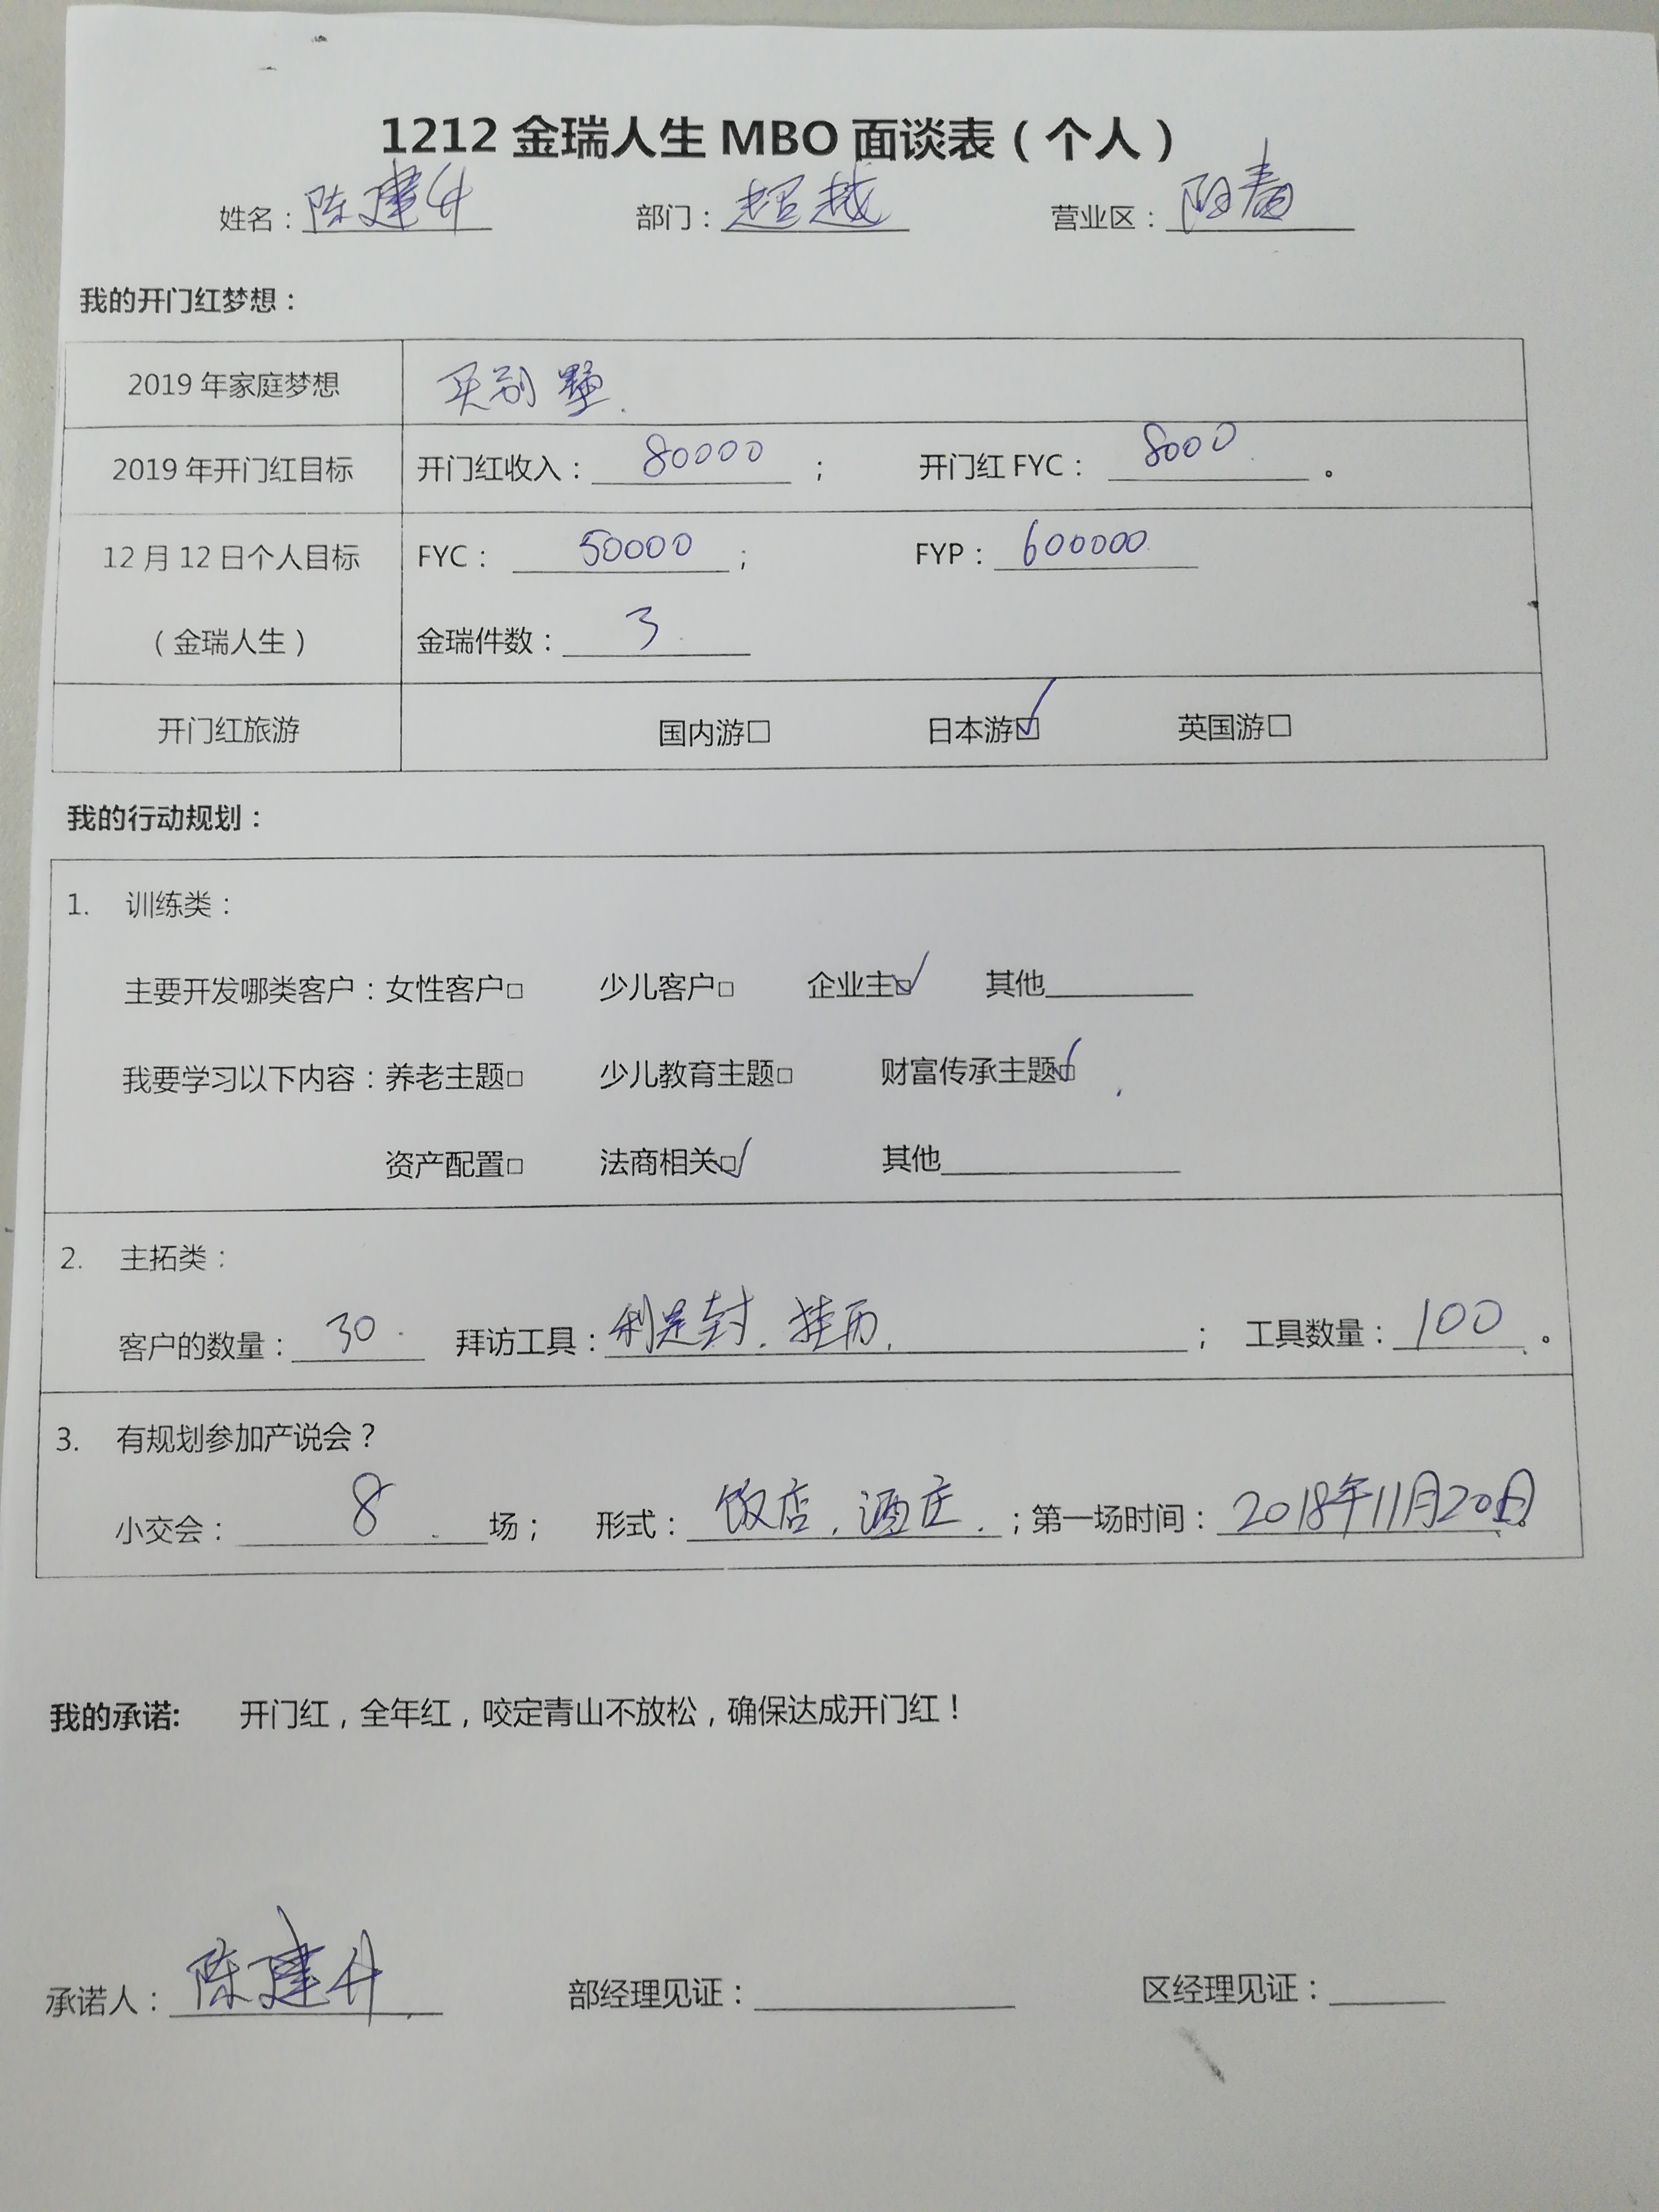 1212 金瑞人生 MBO 面谈表（个人）
姓名：陈建升 部门：超越 营业区：阳春
我的开门红梦想：
2019 年家庭梦想 买别墅.
2019 年开门红目标 开门红收入：80000； 开门红 FYC：8000。
12 月 12 日个人目标 FYC：50000； FYP：600000
（金瑞人生） 金瑞件数：3
开门红旅游 国内游□ 日本游☑ 英国游□
我的行动规划：
1. 训练类：
主要开发哪类客户：女性客户□ 少儿客户□ 企业主☑ 其他______
我要学习以下内容：养老主题□ 少儿教育主题□ 财富传承主题☑
资产配置□ 法商相关☑ 其他______
2. 主拓类：
客户的数量：30 拜访工具：利是封.挂历.； 工具数量：100。
3. 有规划参加产说会？
小交会：8场； 形式：饭店.酒庄.；第一场时间：2018年11月20日。
我的承诺: 开门红，全年红，咬定青山不放松，确保达成开门红！
承诺人：陈建升 部经理见证：______ 区经理见证：______